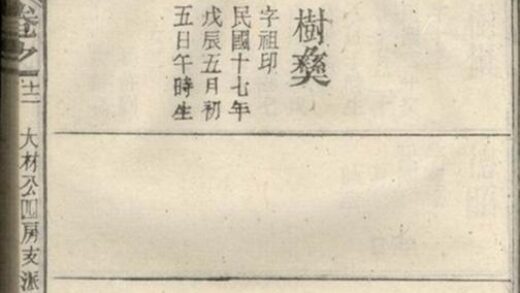 樹彝
字祖印
民國十七年
戊辰五月初
五日午時生
大材公四房亥派